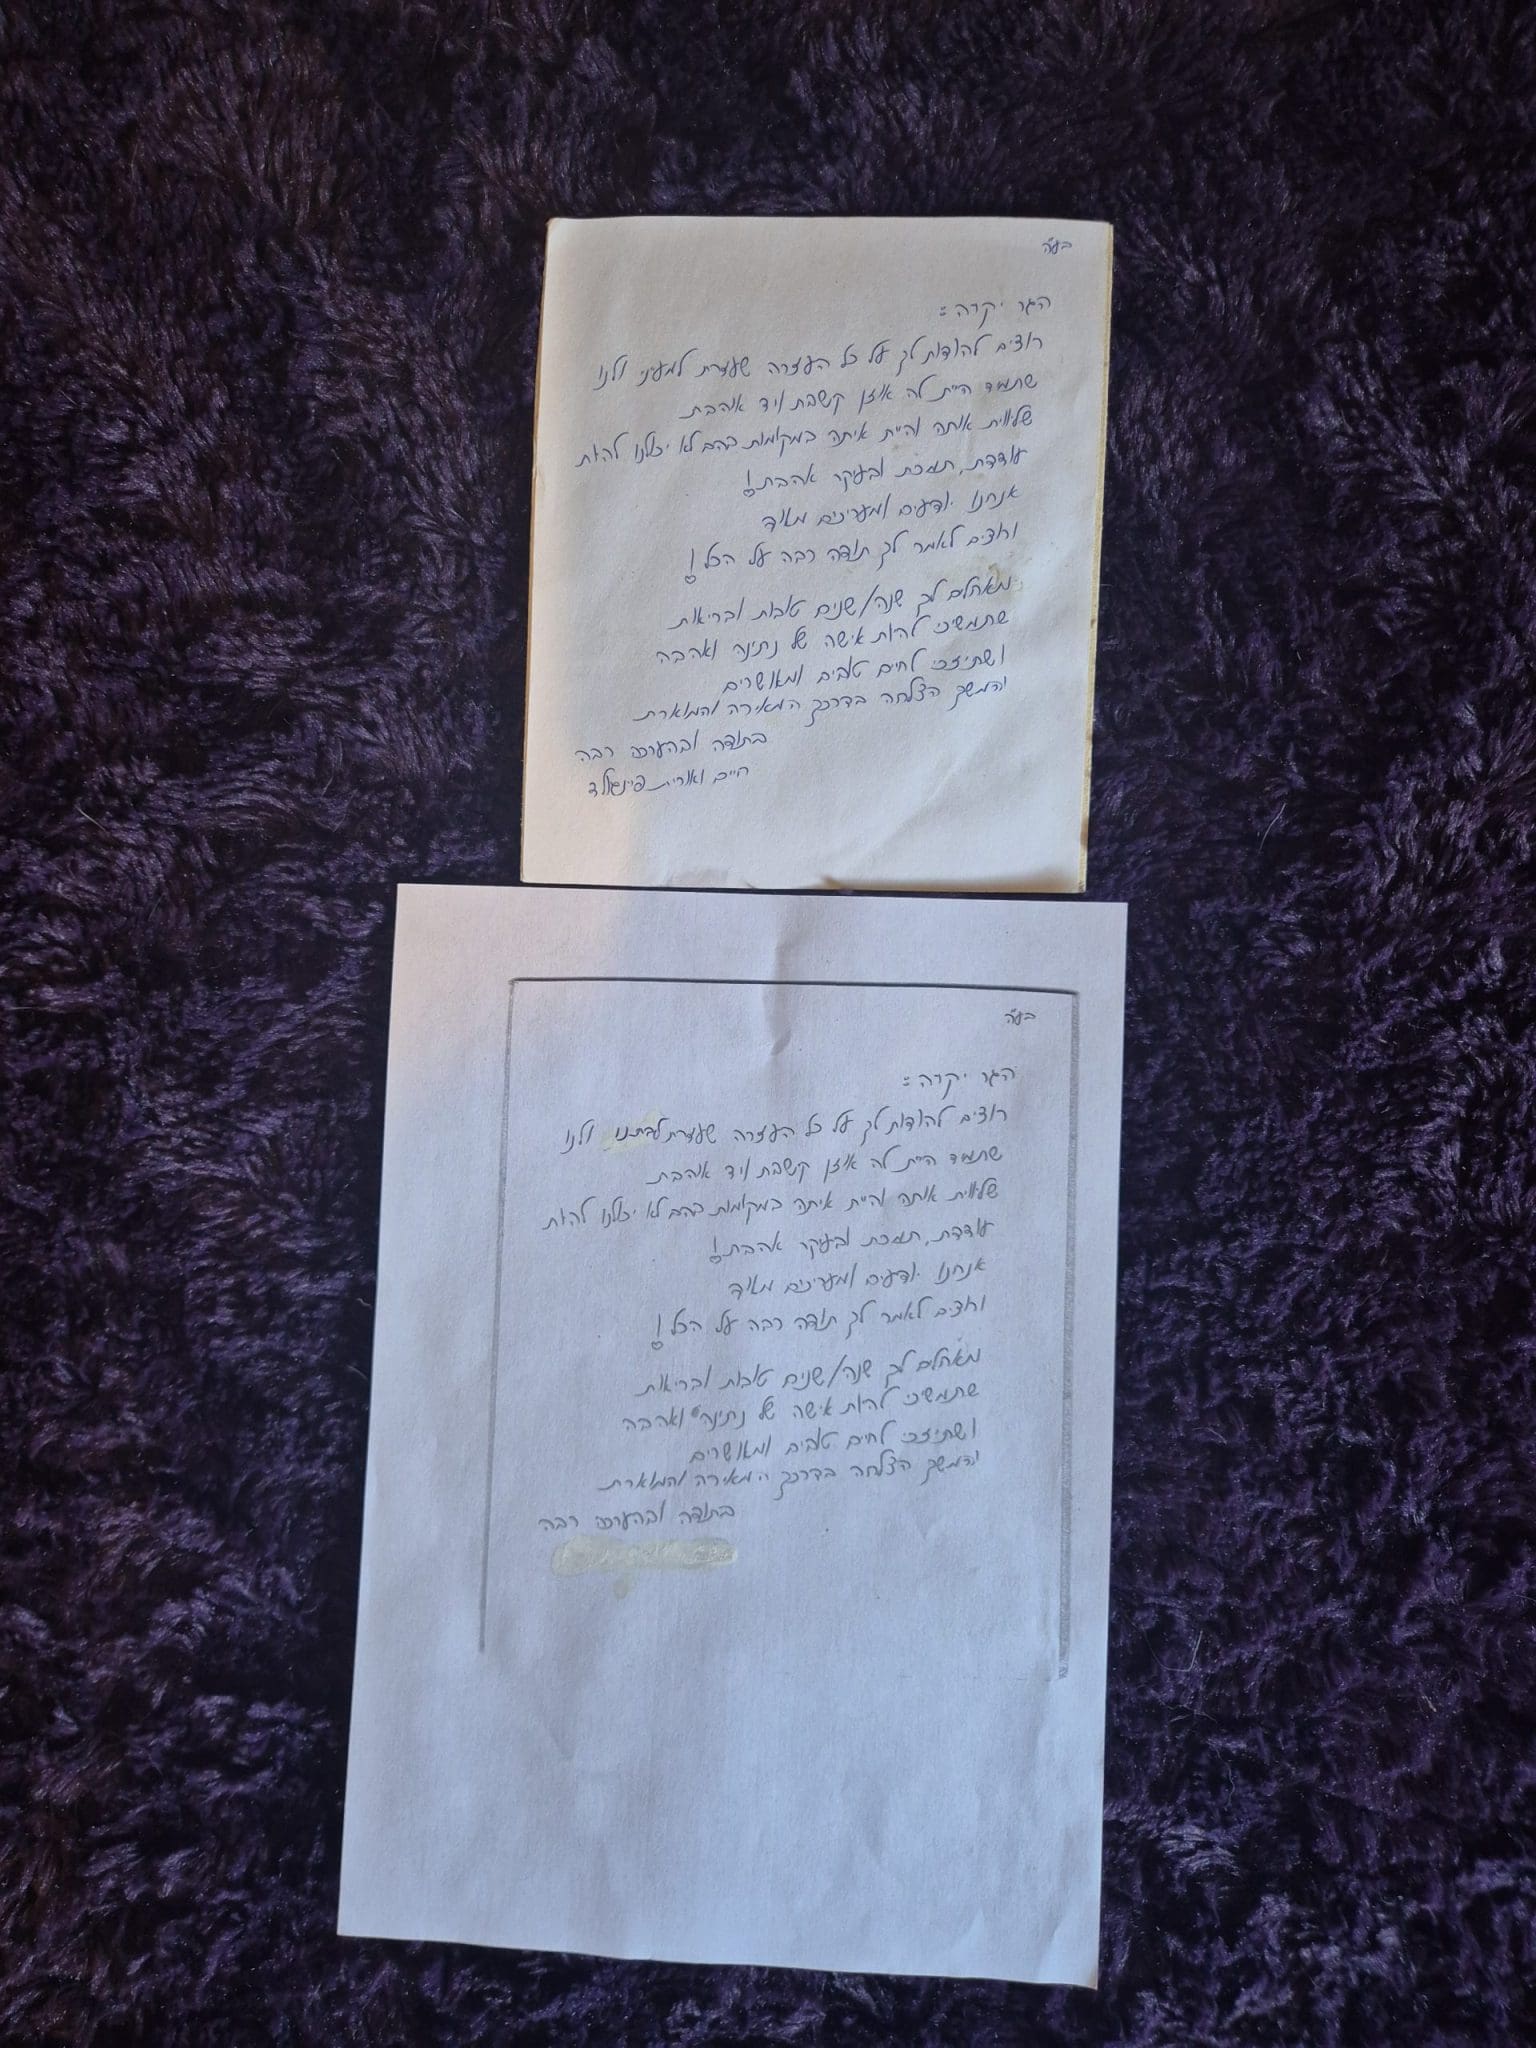 בע"ה
הגר יקרה:
רוצים להודות לך על כל העזרה שעזרת למעיני ולנו
שתמיד היית לה אוזן קשבת ויד אוהבת
שליווית אותה והיית איתה במקומות בהם לא יכולנו להות
עודדת, תמכת ובעיקר אהבת!
אנחנו יודעים ומעריכים מאוד
ורוצים לאמר לך תודה רבה על הכל!
מאחלים לך שנה/שנים טובות ובריאות
שתמשיכי להות אישה של נתינה ואהבה
ושתיזכי לחיים טובים ומאושרים
והמשך הצלחה בדרכך המאירה והמוארת
בתודה ובהערכה רבה
חיים ואורית פיינגולד
בע"ה
הגר יקרה:
רוצים להודות לך על כל העזרה שעזרת לבתנו ולנו
שתמיד היית לה אוזן קשבת ויד אוהבת
שליווית אותה והיית איתה במקומות בהם לא יכולנו להות
עודדת, תמכת ובעיקר אהבת!
אנחנו יודעים ומעריכים מאוד
ורוצים לאמר לך תודה רבה על הכל!
מאחלים לך שנה/שנים טובות ובריאות
שתמשיכי להות אישה של נתינה ואהבה
ושתיזכי לחיים טובים ומאושרים
והמשך הצלחה בדרכך המאירה והמוארת
בתודה ובהערכה רבה